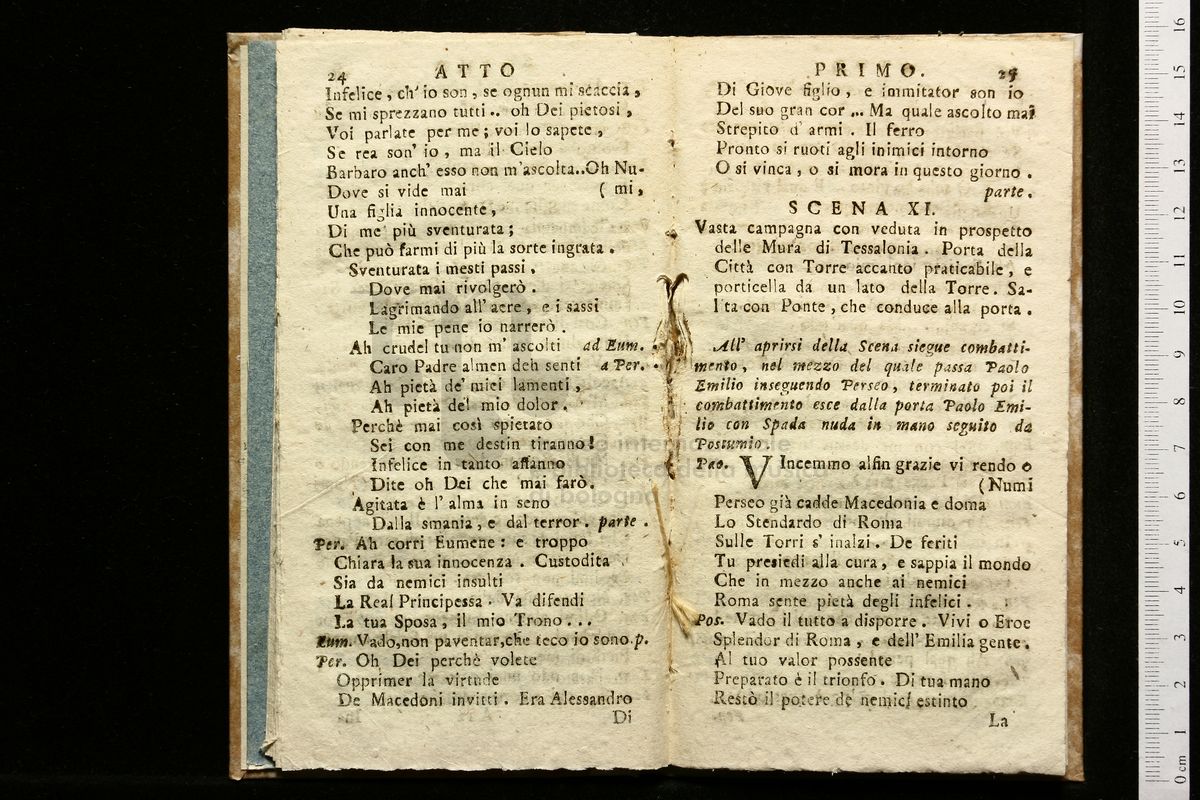 24 ATTO
Infelice, ch' io son, se ognun mi scaccia,
Se mi sprezzano tutti.. oh Dei pietosi,
Voi parlate per me; voi lo sapete,
Se rea son' io, ma il Cielo
Barbaro anch' esso non m'ascolta..Oh Nu-
Dove si vide mai ( mi,
Una figlia innocente,
Di me più sventurata;
Che può farmi di più la sorte ingrata.
Sventurata i mesti passi,
Dove mai rivolgerò.
Lagrimando all' aere, e i sassi
Le mie pene io narrerò.
Ah crudel tu non m' ascolti ad Eum.
Caro Padre almen deh senti a Per.
Ah pietà de' miei lamenti,
Ah pietà del mio dolor.
Perchè mai così spietato
Sei con me destin tiranno!
Infelice in tanto affanno
Dite oh Dei che mai farò.
Agitata è l' alma in seno
Dalla smania, e dal terror. parte.
Per. Ah corri Eumene: e troppo
Chiara la sua innocenza. Custodita
Sia da nemici insulti
La Real Principessa. Va difendi
La tua Sposa, il mio Trono...
Eum. Vado, non paventar, che teco io sono. p.
Per. Oh Dei perchè volete
Opprimer la virtude
De Macedoni invitti. Era Alessandro
Di
PRIMO. 25
Di Giove figlio, e immitator son io
Del suo gran cor... Ma quale ascolto mai
Strepito d' armi. Il ferro
Pronto si ruoti agli inimici intorno
O si vinca, o si mora in questo giorno.
parte.
SCENA XI.
Vasta campagna con veduta in prospetto
delle Mura di Tessalonia. Porta della
Città con Torre accanto praticabile, e
porticella da un lato della Torre. Sa-
lita con Ponte, che conduce alla porta.
All' aprirsi della Scena siegue combatti-
mento, nel mezzo del quale passa Paolo
Emilio inseguendo Perseo, terminato poi il
combattimento esce dalla porta Paolo Emi-
lio con Spada nuda in mano seguito da
Postumio.
Pao. VIncemmo alfin grazie vi rendo o
( Numi
Perseo già cadde Macedonia e doma
Lo Stendardo di Roma
Sulle Torri s' inalzi. De feriti
Tu presiedi alla cura, e sappia il mondo
Che in mezzo anche ai nemici
Roma sente pietà degli infelici.
Pos. Vado il tutto a disporre. Vivi o Eroe
Splendor di Roma, e dell' Emilia gente.
Al tuo valor possente
Preparato è il trionfo. Di tua mano
Restò il potere de' nemici estinto
La
0 cm 1 2 3 4 5 6 7 8 9 10 11 12 13 14 15 16